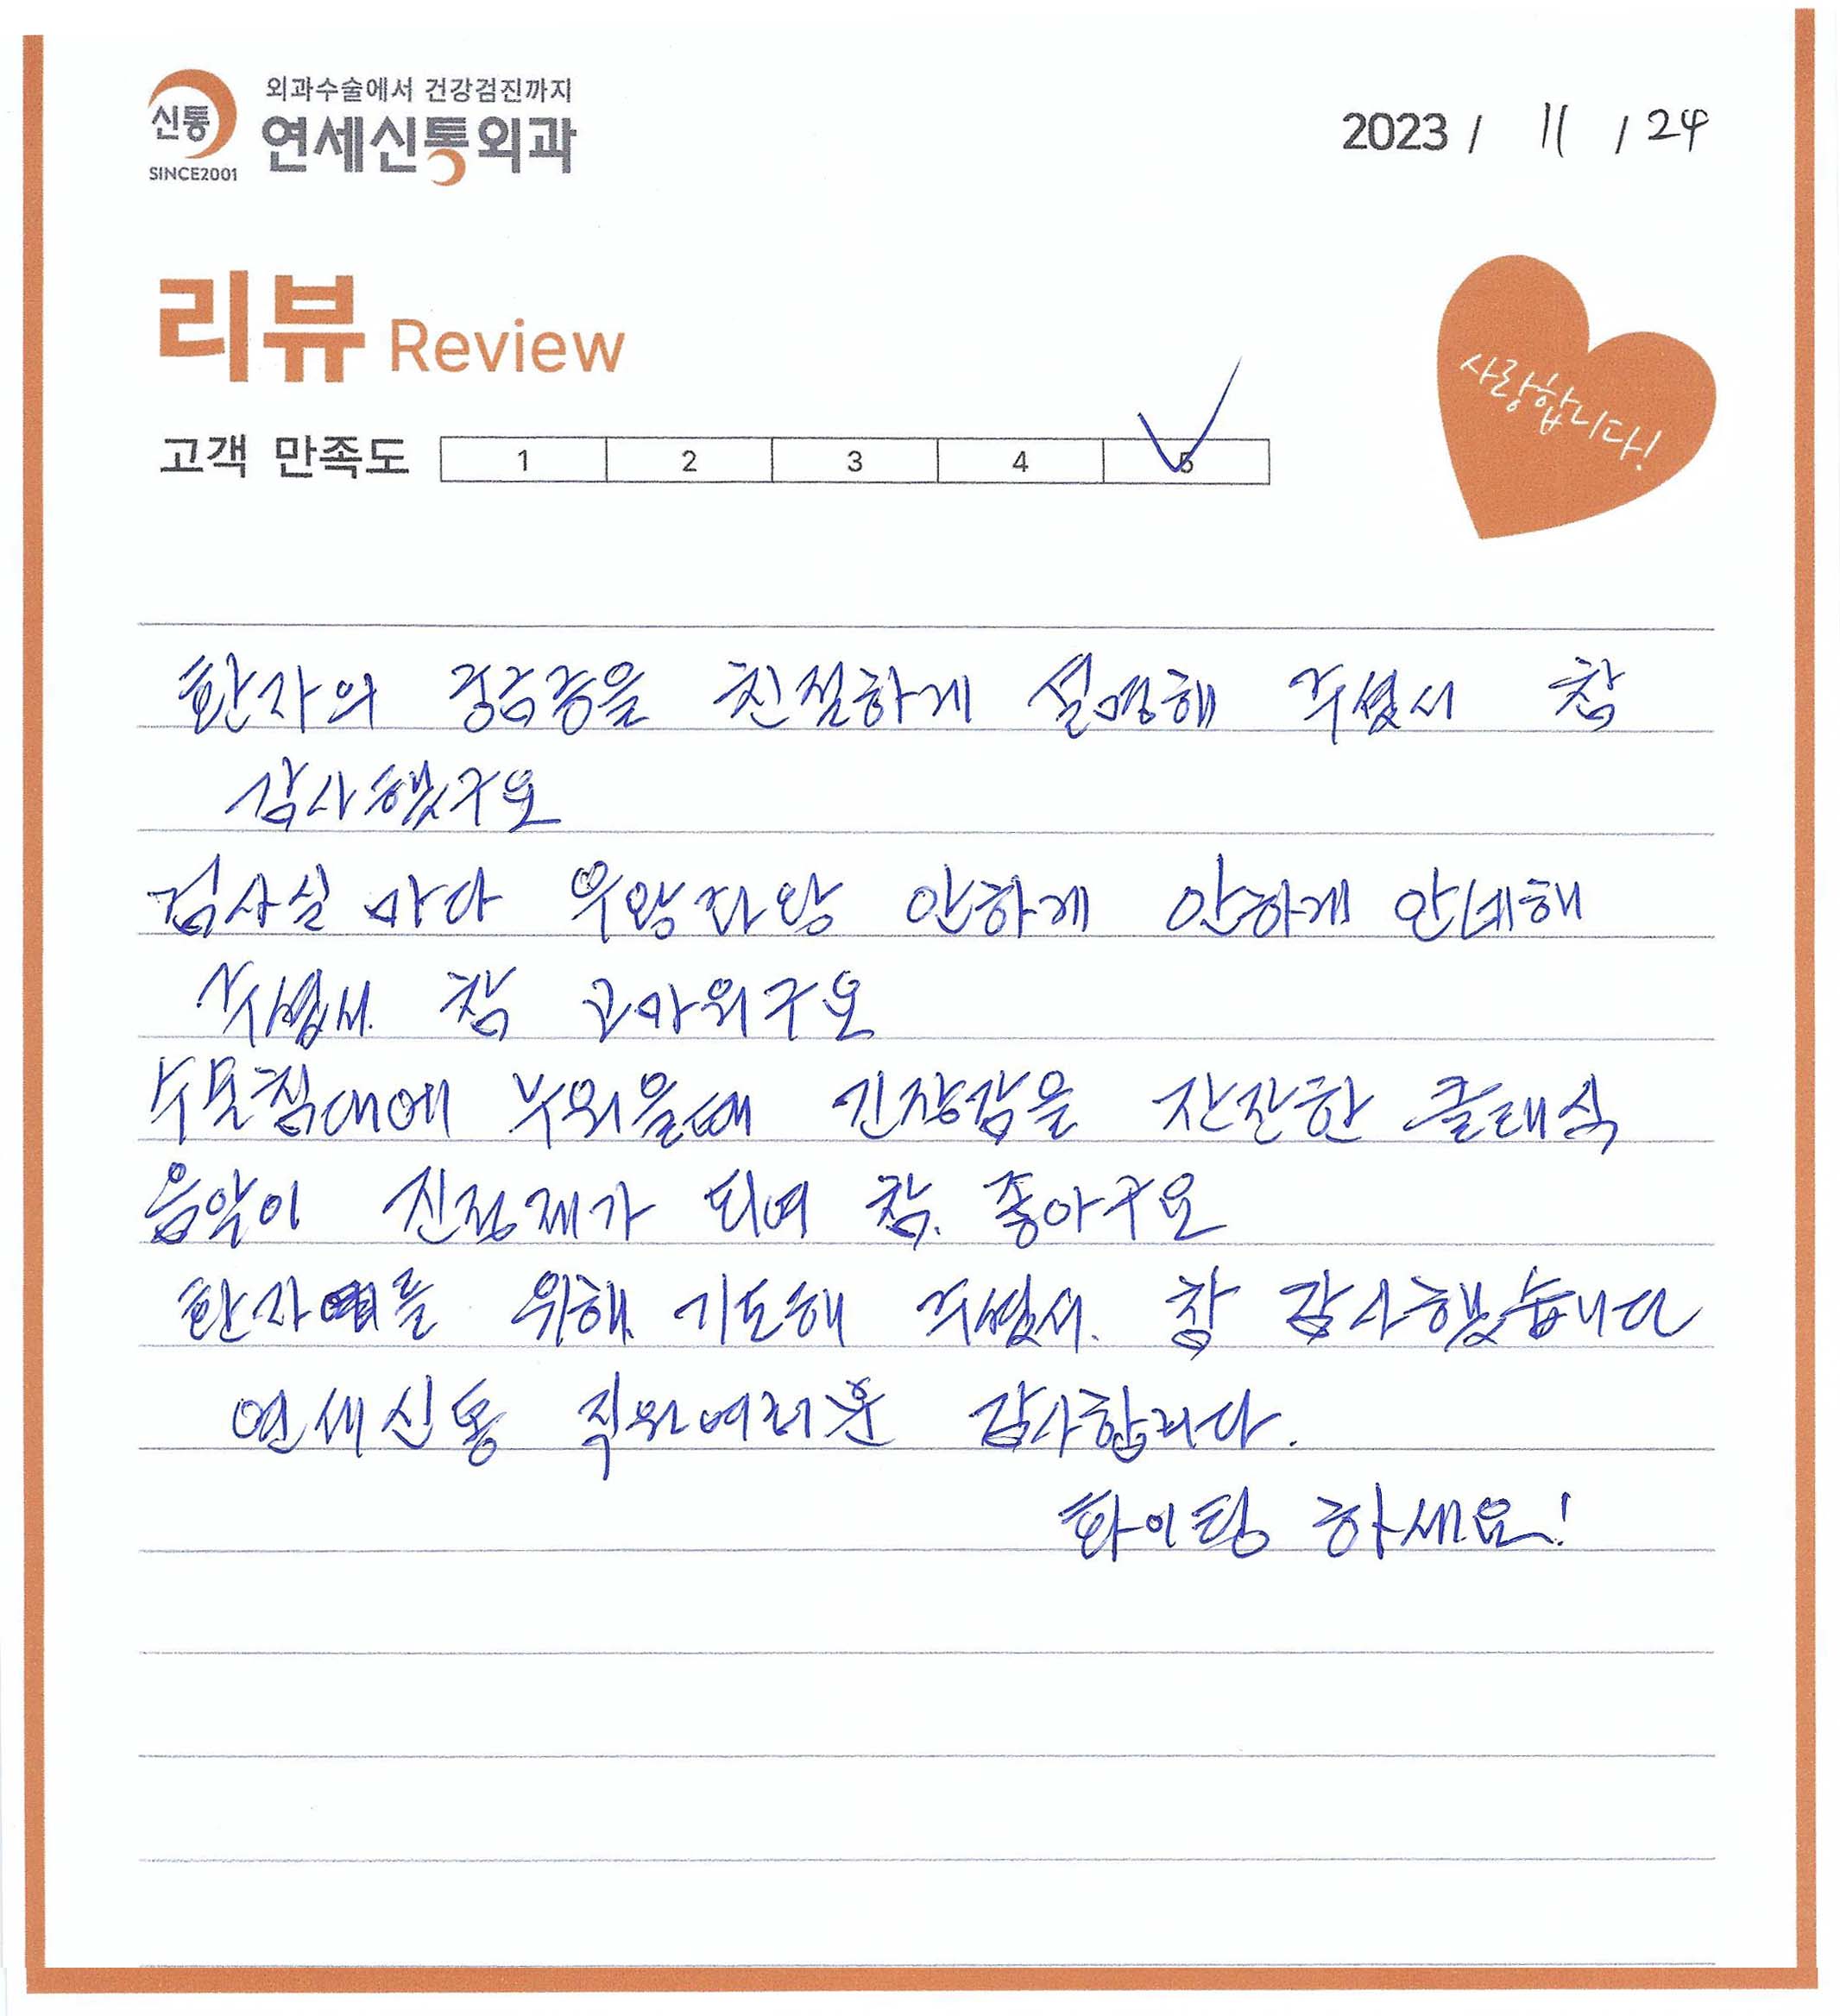 신통
SINCE2001
외과수술에서 건강검진까지
연세신통외과
2023 / 11 / 24
리뷰 Review
사랑합니다!
고객 만족도 1 2 3 4 5
환자의 궁금증을 친절하게 설명해 주셨서 참
감사했구요
검사실 마다 우왕좌왕 안하게 안하게 안네해
주셨서 참 고마워구요
수술침대에 누워을때 긴장감을 잔잔한 클래식
음악이 진정제가 되여 참 좋아구요
환자를 위해 기도해 주셨서 참 감사했습니다
연세신통 직원여러분 감사합니다.
화이팅 하세요!